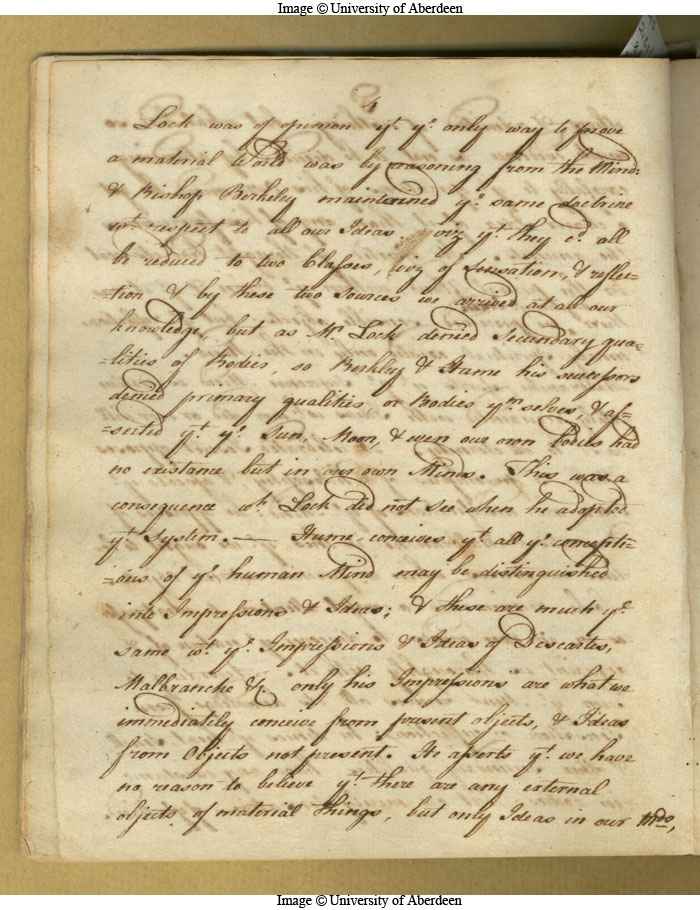 Image © University of Aberdeen
4
Lock was of opinion yt. ye. only way to prove
a material World was by reasoning from the Mind
& Bishop Berkeley maintained ye. same doctrine
wt. respect to all our Ideas viz yt. they cd. all
be reduced to two Classes, viz of Sensation, & reflec=
=tion & by these two sources we arrived at all our
knowledge, but as Mr. Lock denied Secundary qua=
=lities of Bodies, so Berkley & Hume his successors
denied primary qualities or Bodies ym.selves, & as=
=serted yt. ye. Sun, Moon, & even our own bodies had
no existance but in our own Minds. This was a
consequence wh. Lock did not see when he adopted
yt. system. — Hume conceives yt. all ye. concepti=
=ons of ye. human Mind may be distinguished
into Impressions & Ideas; & these are much ye.
same wt. ye. Impressions & Ideas of Descartes,
Malbranche &c. only his Impressions are what we
immediately conceive from present objects, & Ideas
from Objects not present. He aserts yt. we have
no reason to believe yt. there are any external
objects of material things, but only Ideas in our Mds,
Image © University of Aberdeen